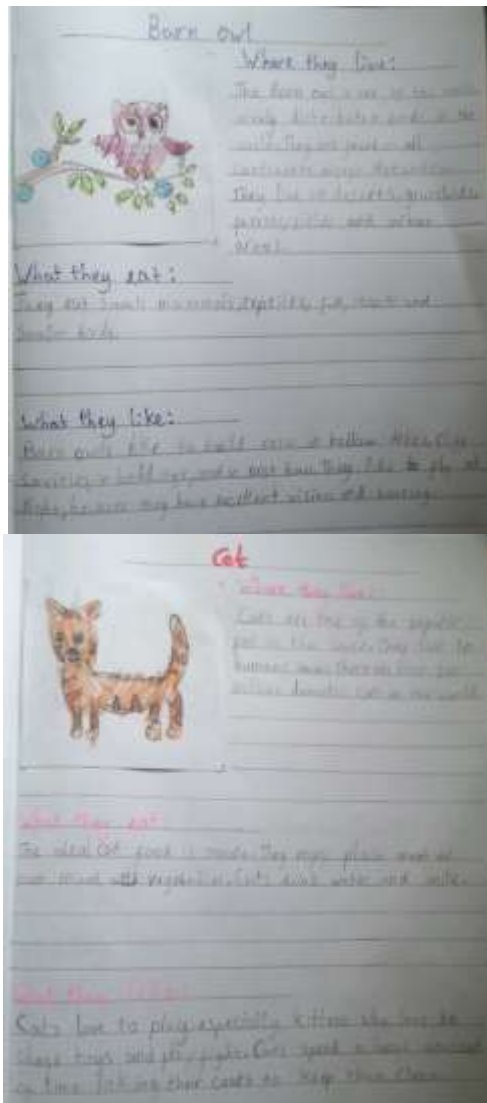 Barn owl
Where they live:
The Barn owl is one of the most
widely distributed birds in the
world. They are found in all
continents except
They live in deserts, grasslands
forests, cities and urban
areas.
What they eat:
They eat small mammals, reptiles, fish, insects and
smaller birds.
What they like:
Barn owls like to build nests in hollow trees, cliff
in nest box. They like to fly at
Night, because they have excellent vision and hearing.
Cat
Where they live:
Cats are one of the popular
pet in the world. They live in
humans There are over
million domestic cat in the world
What they eat:
The ideal cat food is They enjoy plain
meat with vegetables. Cats drink water and milk.
What they like:
Cats love to play especially kittens who love to
chase toys and play fight. Cats spend
on time licking their coats to keep them clean.